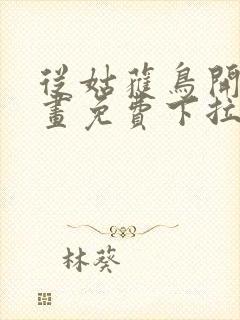 從姑蘿鳥開
畫免費下拉
林葵